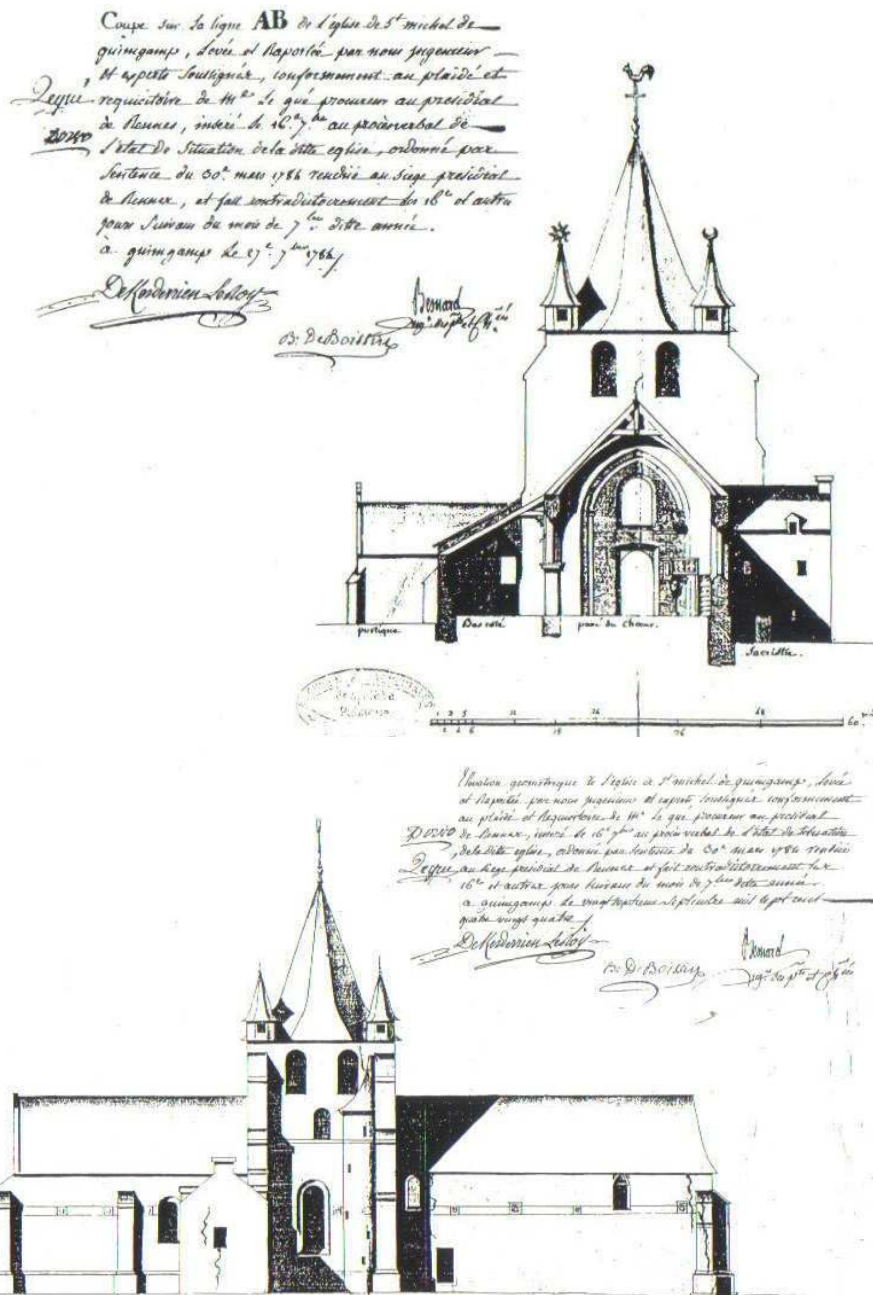 Coupe sur la ligne AB de l'église de St michel de
guingamp, Levée et Raportée par nous jngenieur
et experts soussignés, conformément au plaidé et
requisitoire de Me Le gué procureur au presidial
de Rennes, inséré le 16e 7bre au procès verbal de
l'état de situation de la ditte eglise, ordonné par
Sentence du 30e mars 1784 rendüe au siege presidial
de Rennes, et fait contradictoirement les 16e et autres
jours suivans du mois de 7bre ditte année.
à guingamp Le 27e 7bre 1784
DeKerderrien Lesloy
Besnard
B: De Boissy
portique
Bas coté
pavé du Choeur.
Sacristie.
1 2 3 12 24 48 60
4 6 18 36
Elevation geometrique de l'église de St michel de guingamp, Levée
et Raportée par nous jngenieur et experts soussignés conformement
au plaidé et Requisitoire de Me Le gué procureur au presidial
de Rennes, inseré le 16e 7bre au procès verbal de l'état de situation
de la ditte eglise, ordonné par sentence du 30e mars 1784 rendüe
au siege presidial de Rennes et fait contradictoirement les
16e et autres jours suivans du mois de 7bre ditte année
a guingamp Le vingt septieme septembre mil sept cent
quatre vingt quatre
DeKerderrien Lesloy
Besnard
B: De Boissy